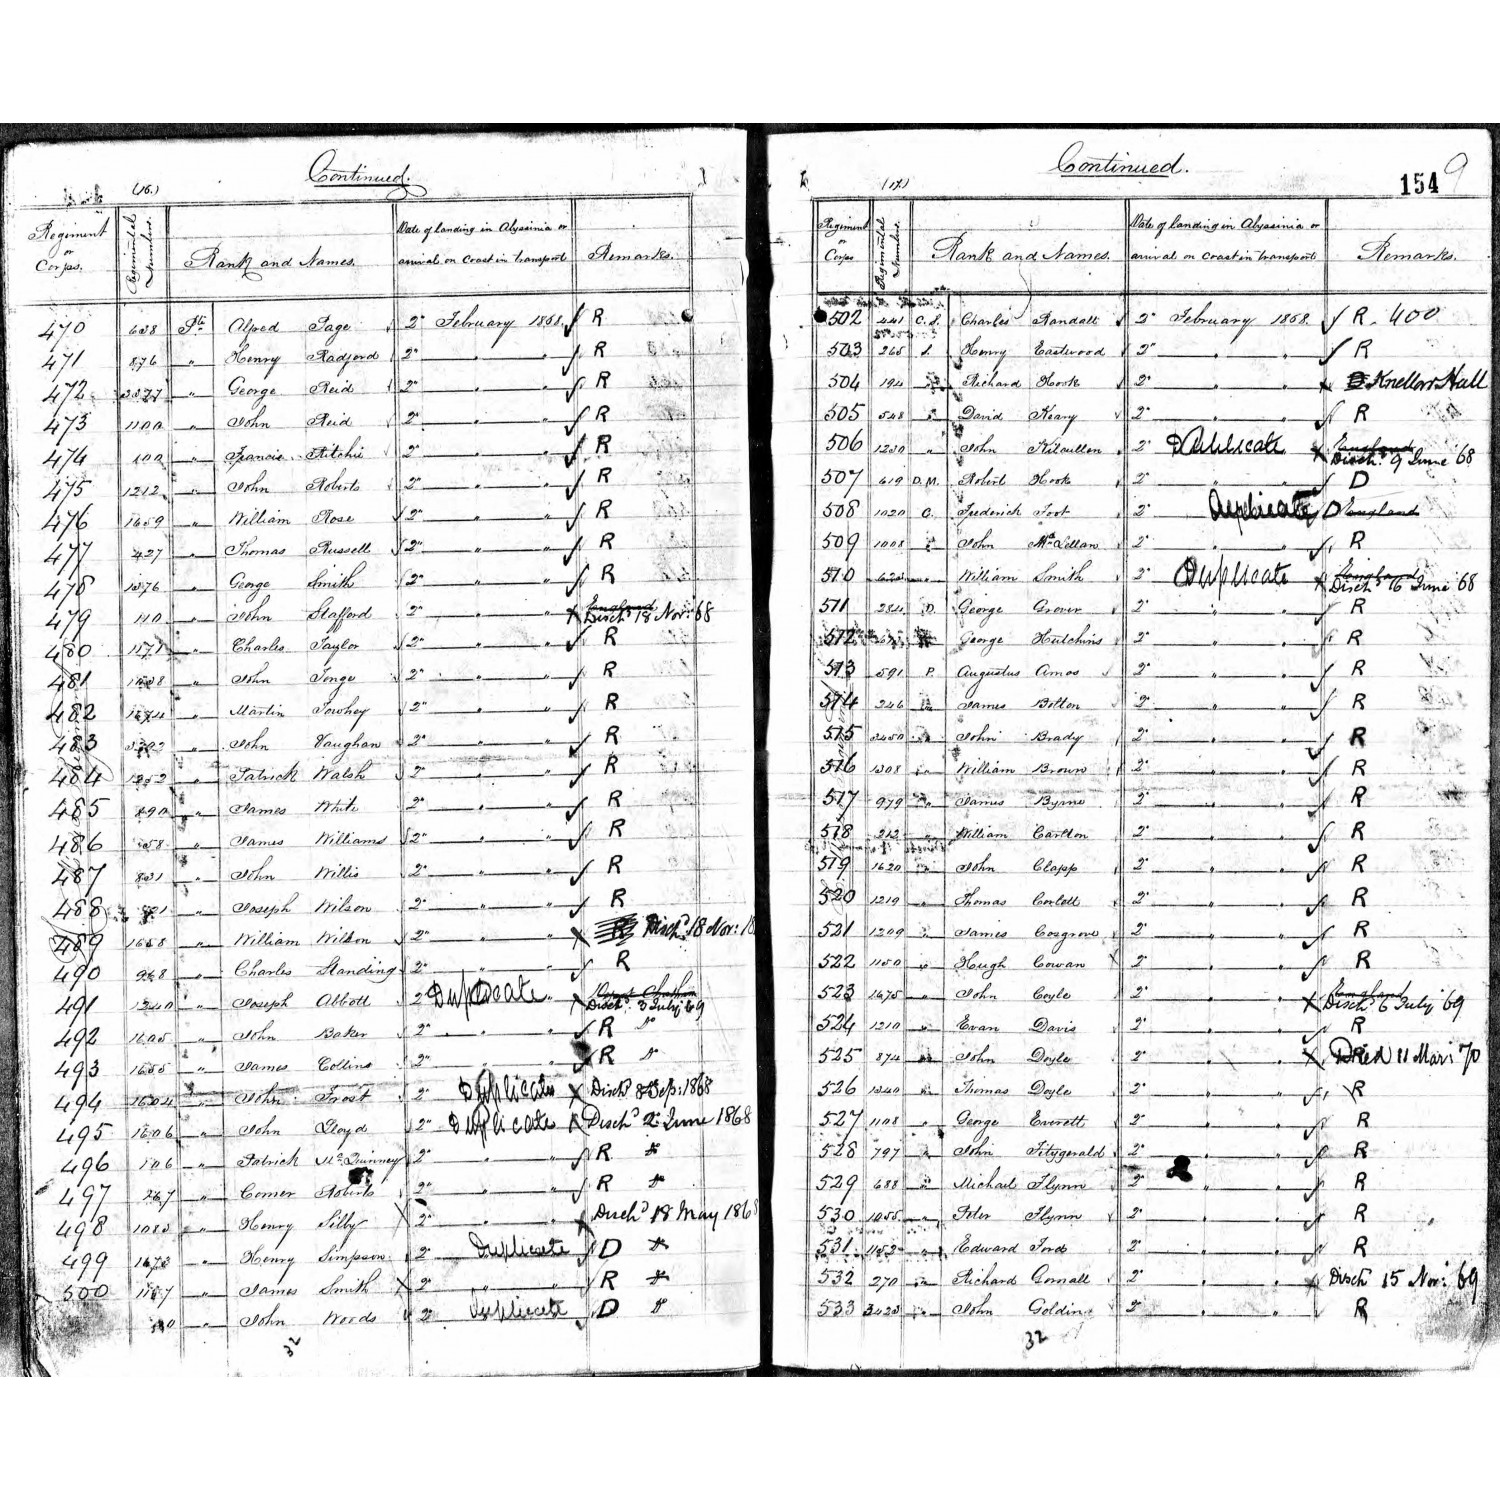 (16.)
Continued.
Regiment or Corps.
Regimental Numbers.
Rank and Names.
Date of landing in Abyssinia or arrival on Coast in transport
Remarks.
470 638 Pte Alfred Page 2" February 1868 R
471 876 " Henry Radford 2" " " R
472 " George Reid 2" " " R
473 1100 " John Reid 2" " " R
474 100 " Francis Ritchie 2" " " R
475 1212 " John Roberts 2" " " R
476 1659 " William Rose 2" " " R
477 427 " Thomas Russell 2" " " R
478 1376 " George Smith 2" " " R
479 110 " John Stafford 2" " " England Disch.d 18 Nov: 68
480 1171 " Charles Taylor 2" " " R
481 " John Tonge 2" " " R
482 " Martin Towhey 2" " " R
483 " John Vaughan 2" " " R
484 " Patrick Walsh 2" " " R
485 " James White 2" " " R
486 " James Williams 2" " " R
487 831 " John Willis 2" " " R
488 " Joseph Wilson 2" " " R
489 1658 " William Wilson 2" " " Disch.d 18 Nov: 18
490 968 " Charles Standing 2" " " R
491 1240 " Joseph Abbott 2" Duplicate Disch.d 3 July 69
492 1605 " John Baker 2" " " R
493 1655 " James Collins 2" " " R
494 1604 " John Frost 2" Duplicate Disch.d 8 Sep: 1868
495 1606 " John Lloyd 2" Duplicate Disch.d 2 June 1868
496 " Patrick McQuinney 2" " " R
497 " Comer Roberts 2" " " R
498 " Henry Silby 2" " " Disch.d 18 May 1868
499 1673 " Henry Simpson 2" Duplicate D
500 " James Smith 2" " " R
" John Woods 2" Duplicate D
32
(17.)
Continued.
154 9
Regiment or Corps
Regimental Numbers.
Rank and Names.
Date of landing in Abyssinia or arrival on Coast in transport
Remarks.
502 441 C.S. Charles Randall 2" February 1868. R. 400
503 265 S. Henry Eastwood 2" " " R
504 194 " Richard Hook 2" " " Knellor Hall
505 548 " David Keary 2" " " R
506 1230 " John Kilcullen 2" Duplicate England Disch.d 9 June 68
507 619 D.M. Robert Hook 2" " " D
508 1020 C. Frederick Foot 2" Duplicate D England
509 1008 " John McLellan 2" " " R
510 " William Smith 2" Duplicate England Disch.d 16 June 68
511 284 D. George Grover 2" " " R
512 George Hutchins 2" " " R
513 591 P. Augustus Amos 2" " " R
514 246 " James Bolton 2" " " R
515 2450 " John Brady 2" " " R
516 1308 " William Brown 2" " " R
517 979 " James Byrne 2" " " R
518 212 " William Carlton 2" " " R
519 1620 " John Clapp 2" " " R
520 1219 " Thomas Corlett 2" " " R
521 1209 " James Cosgrove 2" " " R
522 1150 " Hugh Cowan 2" " " R
523 1675 " John Coyle 2" " " England Disch.d 6 July 69
524 1210 " Evan Davis 2" " " R
525 874 " John Doyle 2" " " Died 11 Mar: 70
526 1340 " Thomas Doyle 2" " " R
527 1108 " George Everett 2" " " R
528 797 " John Fitzgerald 2" " " R
529 688 " Michael Flynn 2" " " R
530 1055 " Peter Flynn 2" " " R
531 1152 " Edward Ford 2" " " R
532 270 " Richard Gomall 2" " " Disch.d 15 Nov: 69
533 3423 " John Golding 2" " " R
32